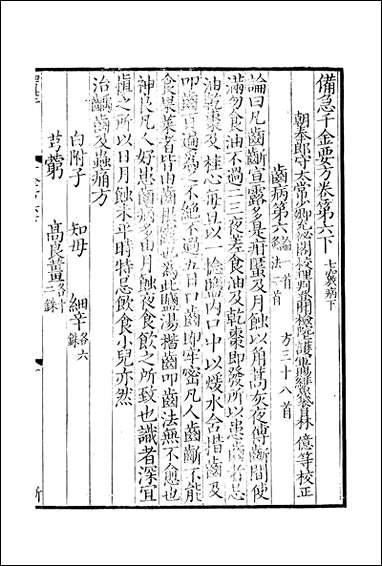 備急千金要方卷第六下 七竅病下
朝奉郎守太常少卿充祕閣校理判登聞檢院上護軍賜緋魚袋臣林億等校正
齒病第六 論一首 方三十八首 法一首
論曰凡齒齗宣露多是疳䘌及月蝕以角蒿灰夜傅齗間使
滿勿食油不過二三夜差食油及乾棗即發所以患齒者忌
油乾棗及桂心每旦以一捻鹽內口中以煖水含揩齒及
叩齒百遍為之不絕不過五日口齒即牢密凡人齒齗不能
食果菜者皆由齒根露也為此鹽湯揩齒叩齒法無不愈也
神良凡人好患齒病多由月蝕夜食飲之所致也識者深宜
慎之所以日月蝕未平時特忌飲食小兒亦然
治齲齒及蟲痛方
白附子 知母 細辛各六銖
芎藭 高良薑各十二銖